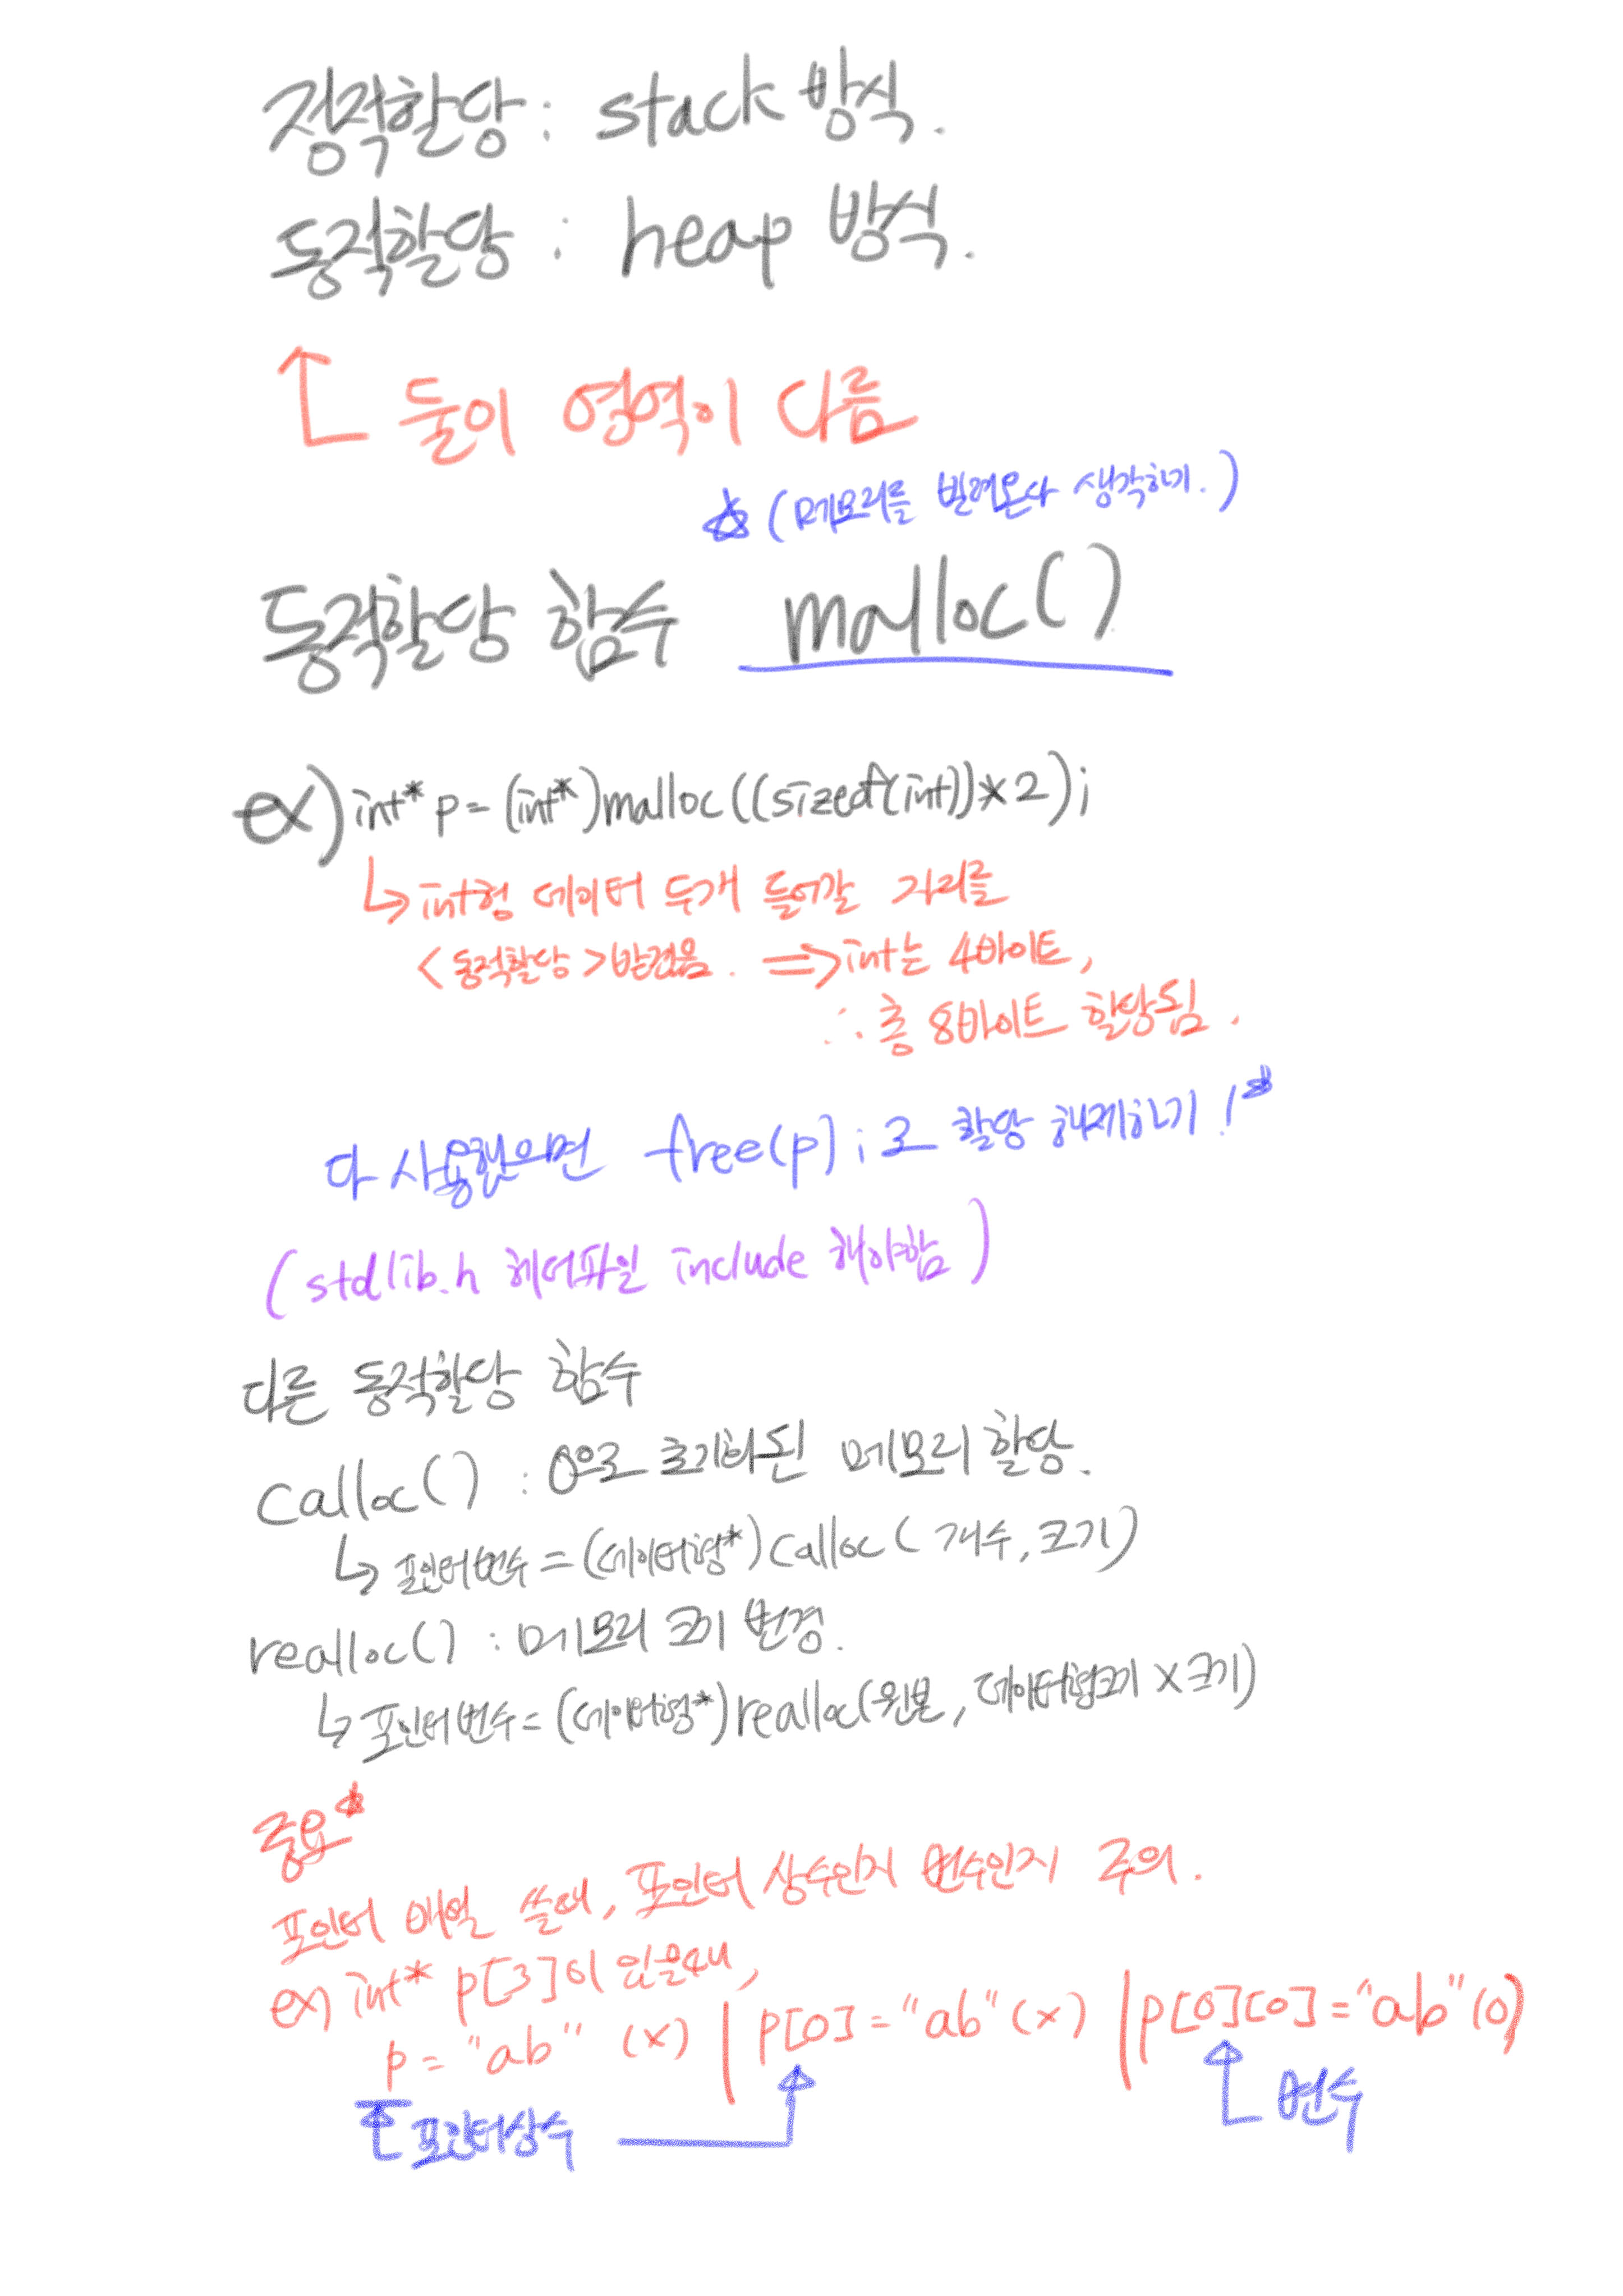 정적할당 : stack 방식.
동적할당 : heap 방식.
둘이 영역이 다름
(메모리를 빌려온다 생각하기.)
동적할당 함수 malloc()
ex) int* p = (int*)malloc((sizeof(int))*2);
int형 데이터 두개 들어갈 자리를
<동적할당> 받았음. ⇒ int는 4바이트,
∴ 총 8바이트 할당됨.
다 사용했으면 free(p);로 할당 해제하기!
(stdlib.h 헤더파일 include 해야함)
다른 동적할당 함수
calloc() : 0으로 초기화된 메모리 할당.
↳ 포인터변수 = (데이터형*)calloc(개수, 크기)
realloc() : 메모리 크기 변경.
↳ 포인터변수 = (데이터형*)realloc(원본, 데이터형크기 X 크기)
중요
포인터 배열 쓸때, 포인터 상수인지 변수인지 주의.
ex) int* p[3]이 있을때,
p = "ab" (x) | p[0] = "ab" (x) | p[0][0] = "ab" (o)
포인터상수 변수